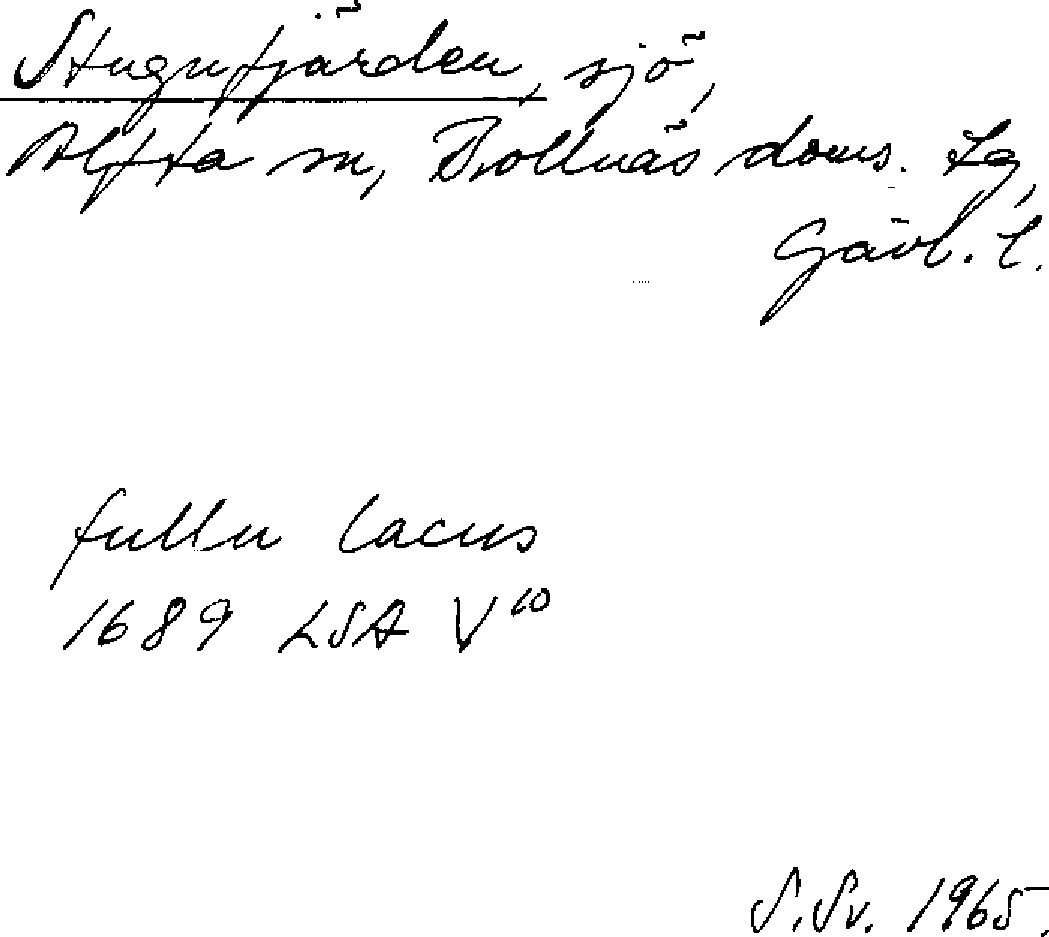 Stugufjärden, sjö,
Alfta sn, Bollnäs doms. Lg,
Gävl. l.
fullu lacus
1689 LSA V10
S.Sv. 1965.